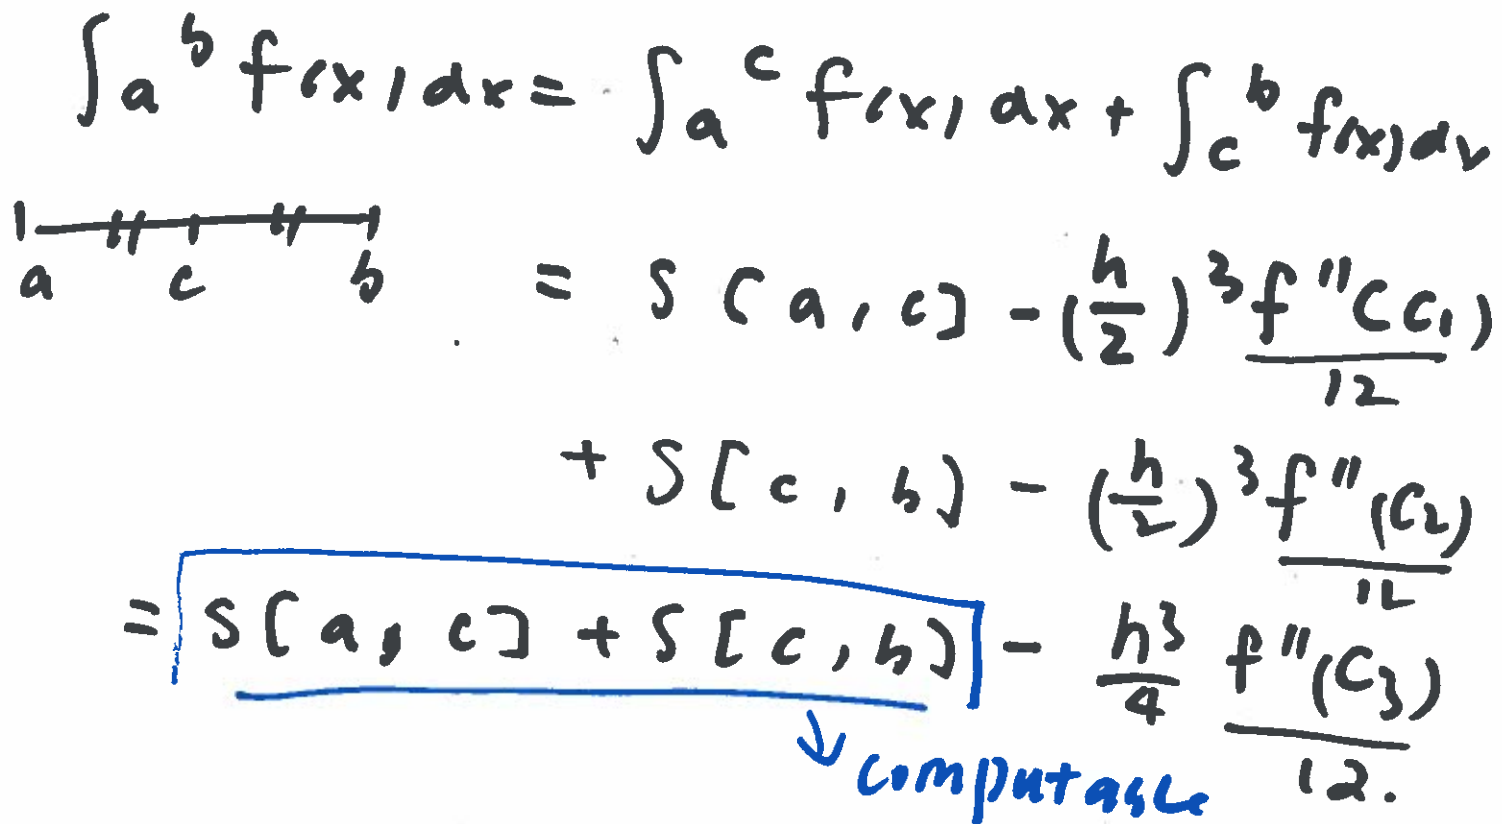 ∫_a^b f(x)dx = ∫_a^c f(x)dx + ∫_c^b f(x)dx
a c b
= S[a,c] - (h/2)^3 f''(c_1)/12
+ S[c,b] - (h/2)^3 f''(c_2)/12
= S[a,c] + S[c,b] - h^3/4 f''(c_3)/12.
computable